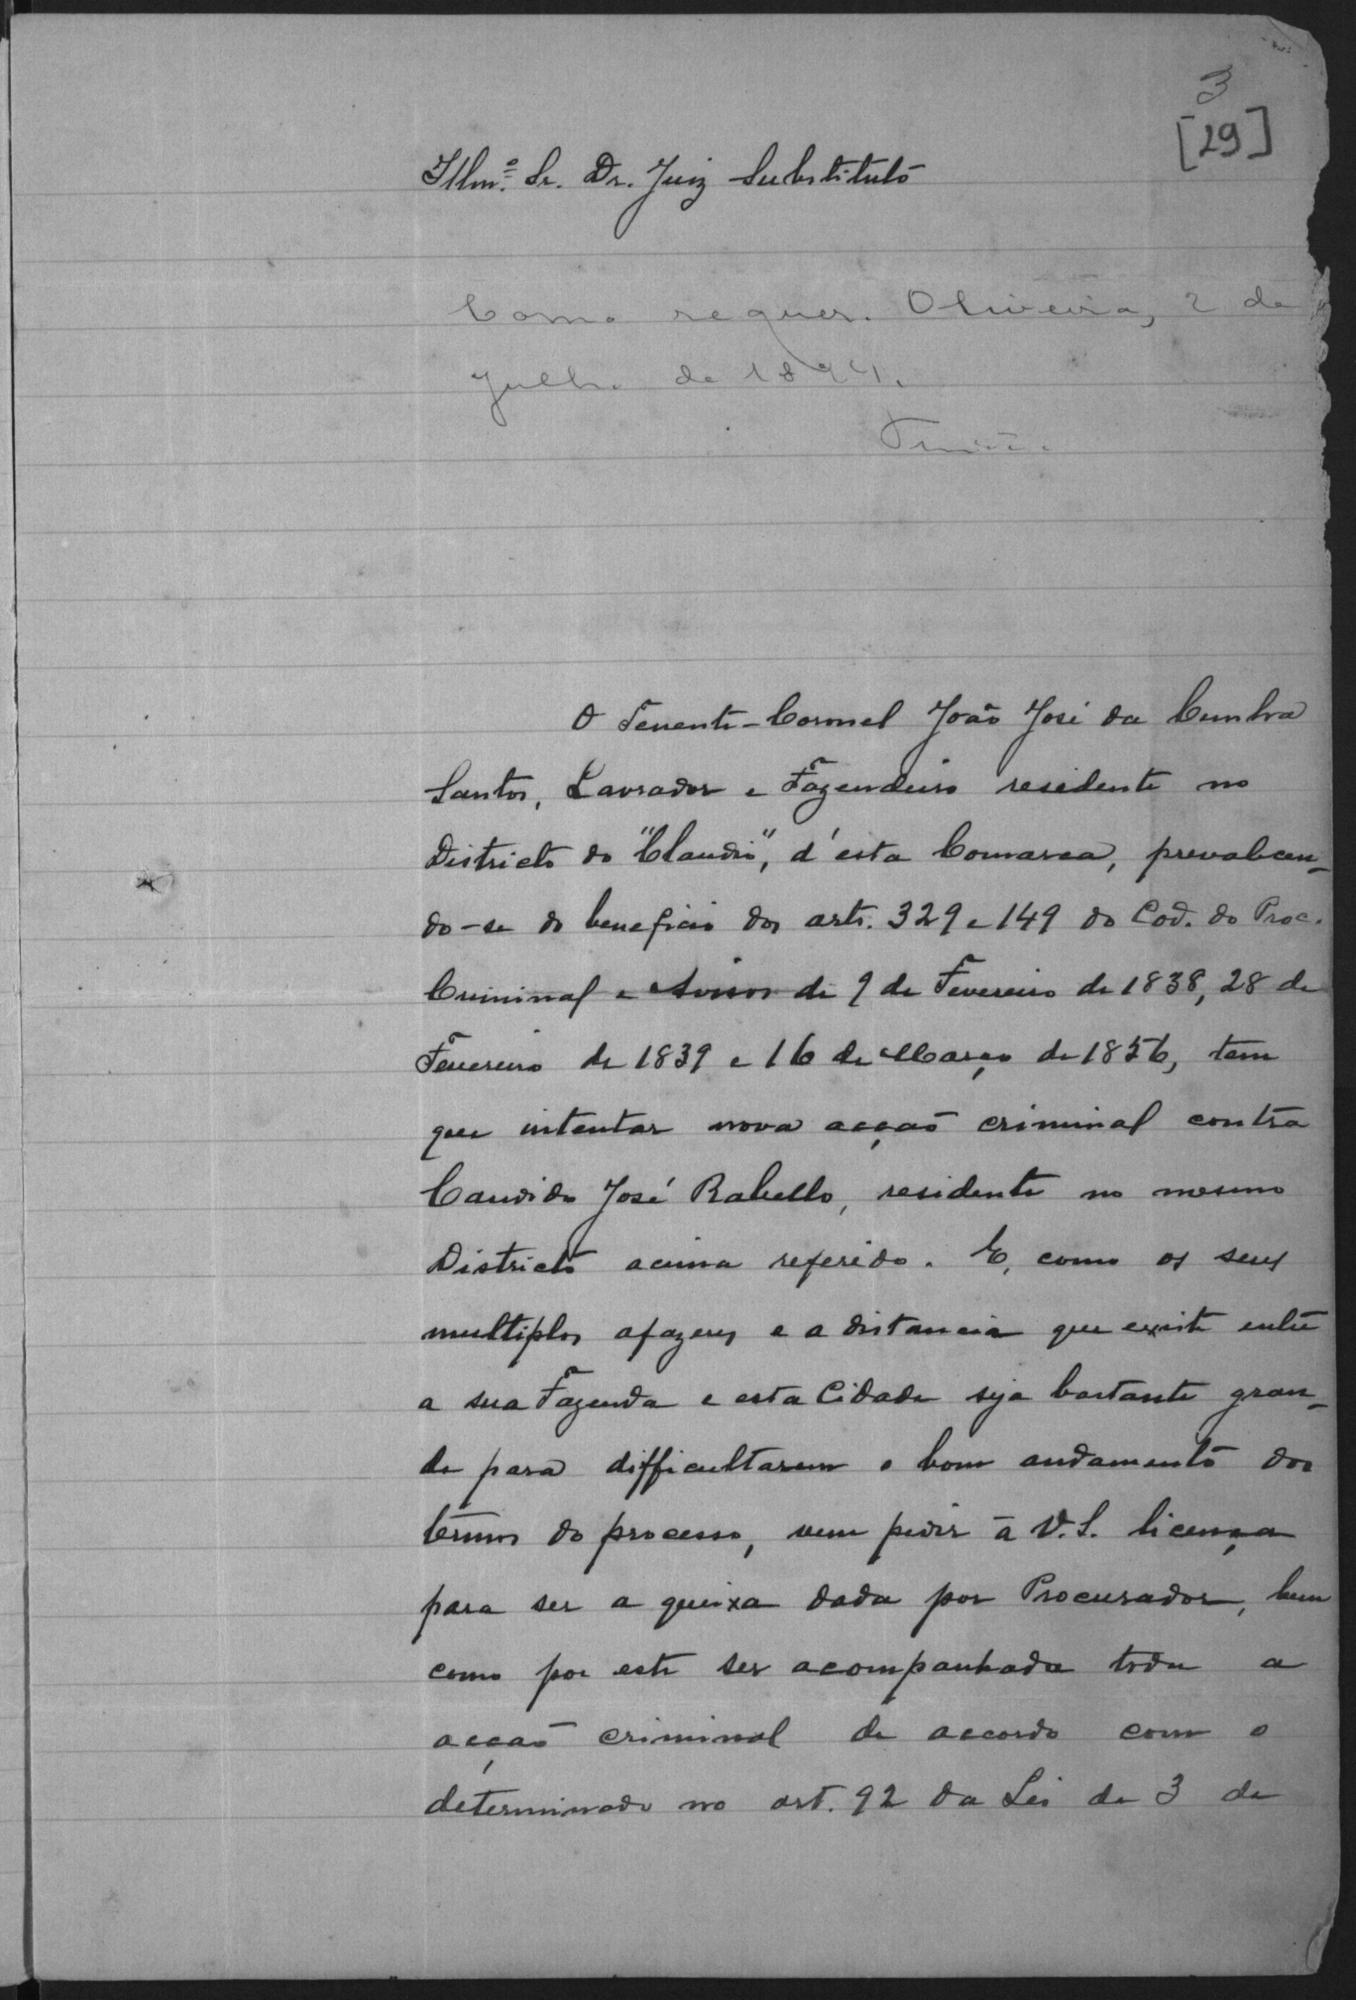 3
[29]
Illmº. Sr. Dr. Juiz Substituto
Como requer. Oliveira, 2 de
Julho de 1894.
O Tenente-Coronel João José da Cunha
Santos, Lavrador e Fazendeiro residente no
Districto do "Claudio", d'esta Comarca, prevalecen-
do-se do beneficio dos arts. 329 e 149 do Cod. do Proc.
Criminal e Avisos de 9 de Fevereiro de 1838, 28 de
Fevereiro de 1839 e 16 de Março de 1856, tem
que intentar nova acção criminal contra
Candido José Rabello, residente no mesmo
Districto acima referido. E, como os seus
multiplos afazeres e a distancia que existe entre
a sua Fazenda e esta Cidade seja bastante gran-
de para difficultarem o bom andamento dos
termos do processo, vem pedir á V.S. licença
para ser a queixa dada por Procurador, bem
como por este ser acompanhada toda a
acção criminal de accordo com o
determinado no art. 92 da Lei de 3 de